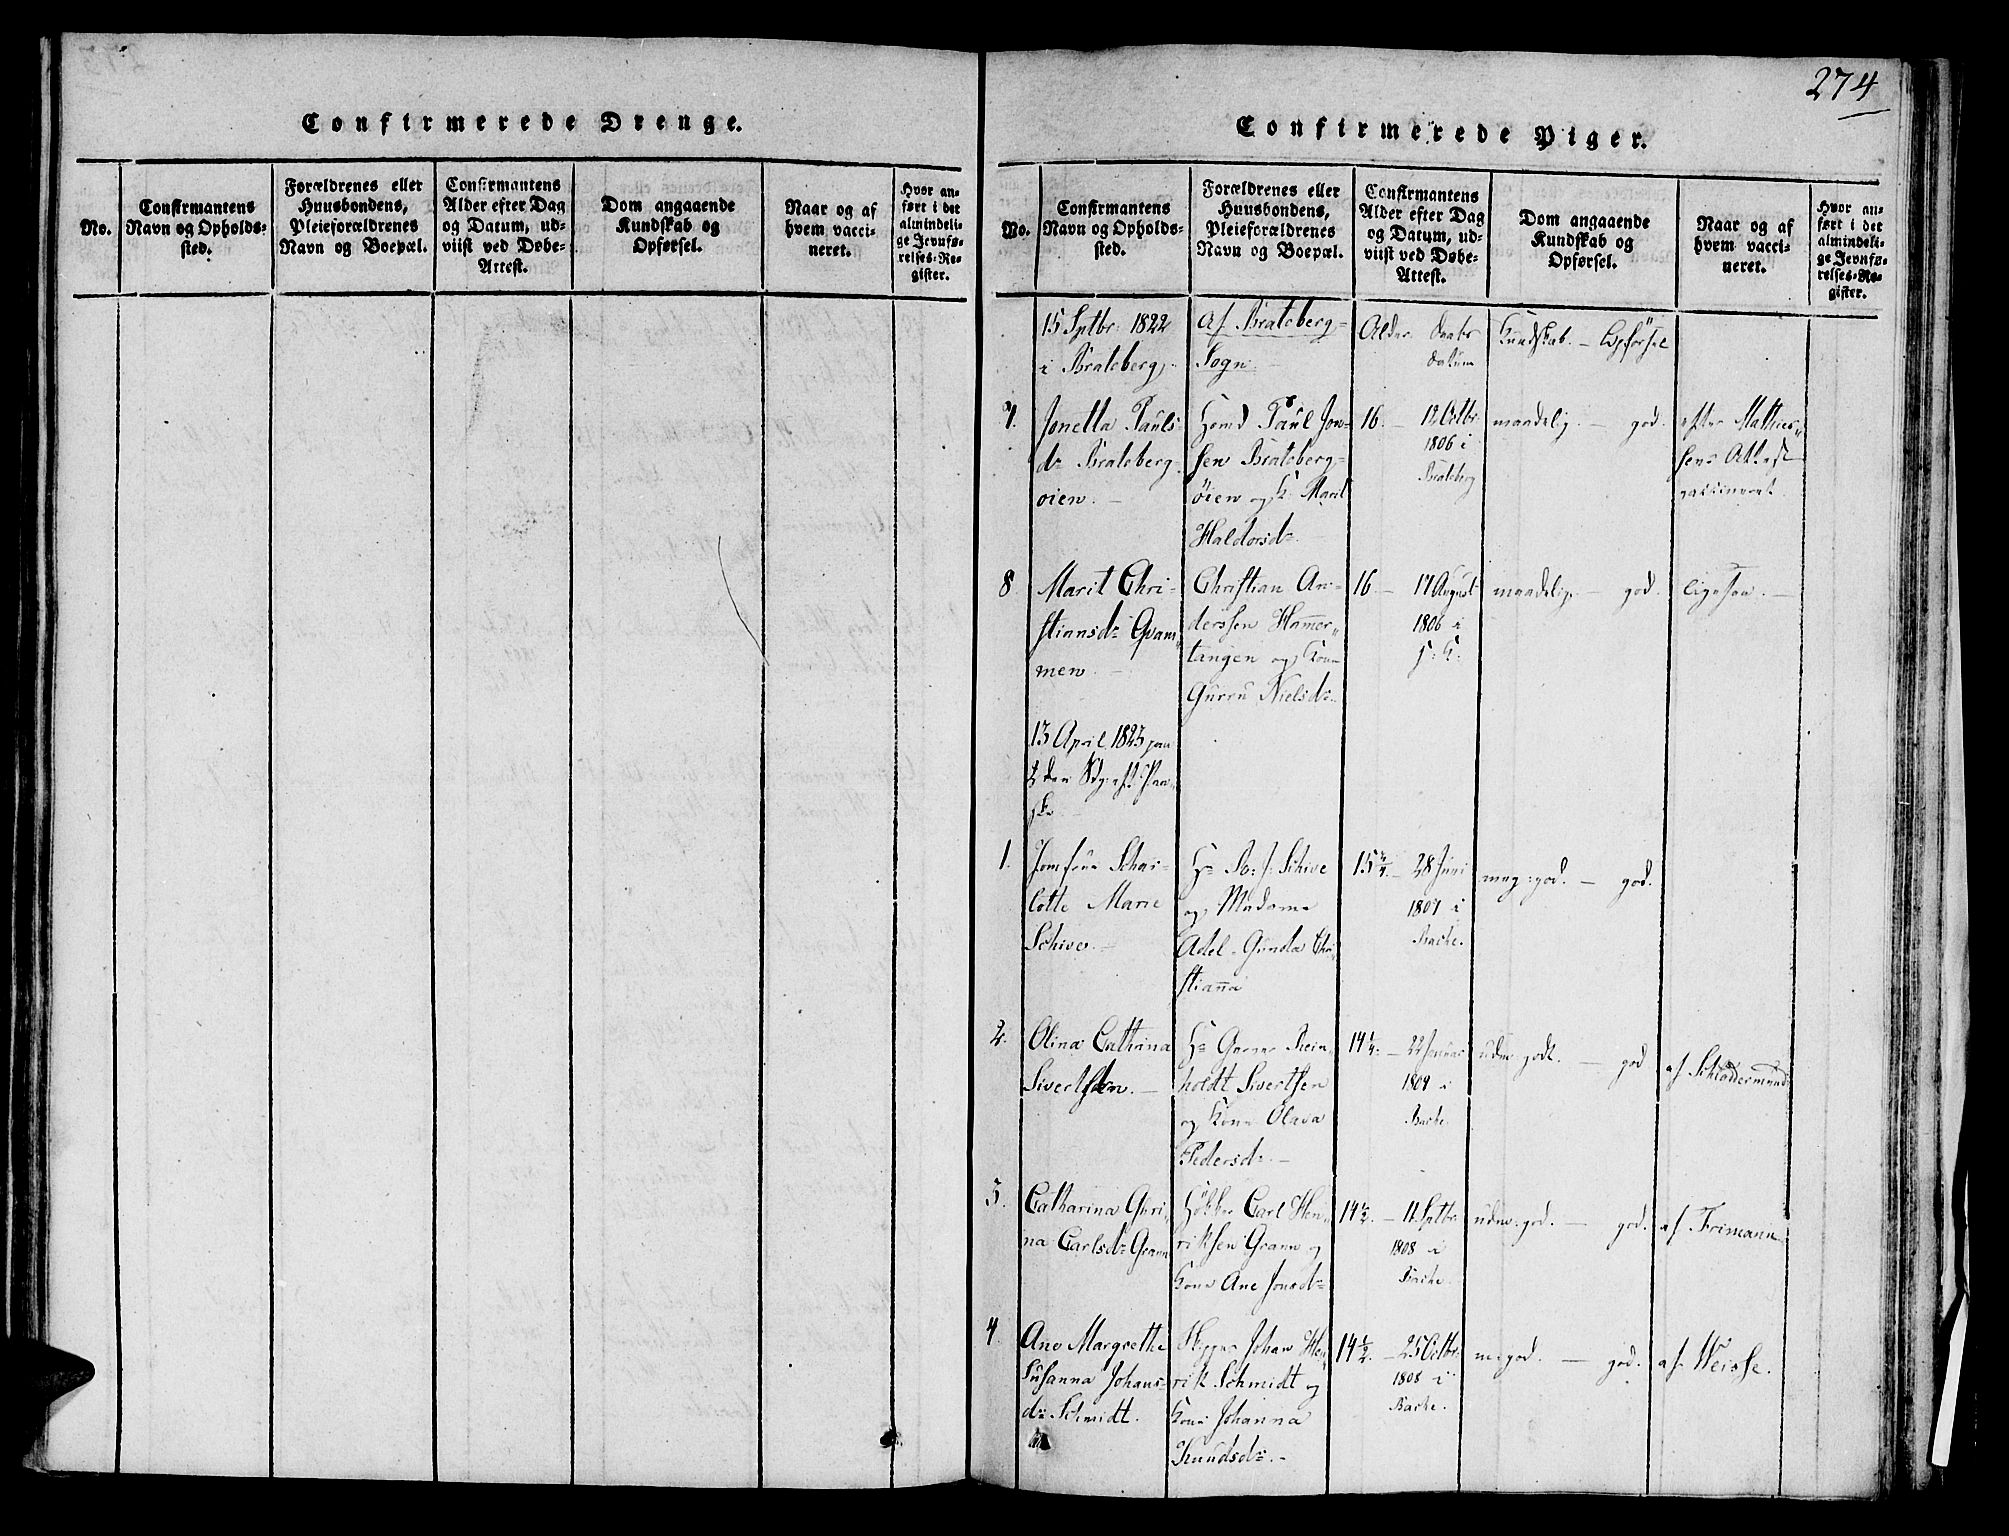 274
Confirmerede Drenge.
No.
Confirmantens
Navn og Opholds-
sted.
Forældrenes eller
Huusbondens,
Pleieforældrenes
Navn og Boepæl.
Confirmantens
Alder efter Dag
og Datum, ud-
viist ved Døbe-
Attest.
Dom angaaende
Kundskab og
Opførsel.
Naar og af
hvem vacci-
neret.
Hvor an-
ført i det
almindeli-
ge Jevnfø-
relses-Re-
gister.
Confirmerede Piger.
No.
Confirmantens
Navn og Opholds-
sted.
Forældrenes eller
Huusbondens,
Pleieforældrenes
Navn og Boepæl.
Confirmantens
Alder efter Dag
og Datum, ud-
viist ved Døbe-
Attest.
Dom angaaende
Kundskab og
Opførsel.
Naar og af
hvem vacci-
neret.
Hvor an-
ført i det
almindeli-
ge Jevnfø-
relses-Re-
gister.
15 Sptbr: 1822
i Bratsberg.
Af Bratsberg-
Sogn.
Alder. Daabs
Datum
Kundskab. - Opförsel
7.
Jonetta Pauls-
dr Bratsberg
oien.
Paul Jon-
sen Bratsberg-
öien og K. Marit
Haldorsdr
16. - 12 Octbr
1806 i
Bratsberg
maadelig. - god.
efter Mathies-
sens Attest
vaccineret
8
Marit Chri-
stiansdr Qvam-
men.
Christian An-
derssen Hamer-
tangen og Kone
Gurru Nielsdr.
16. - 17 August
1806 i
maadelig. - god.
13 April 1823
1.
Jomfrue Schar-
lotte Marie
Schive.
Hr Schive
og Madame
Adel Gunda Chri-
stianna
15 3/4. - 28 Juni
1807 i
Bache.
meg: god. - god.
2.
Olina Cathrina
Sivertsen.
Hr Rein-
holdt Sivertsen
og Kone Olava
Pedersdr.
14 1/4. - 22 Januar
1809 i
Bache
udm: godt. - god
af Schlødermund
3.
Catharina
na Carlsdr Gram
Høker Carl Hen-
riksen Gram og
Kone Ane Jonsdr
14 1/2. - 11 Sptbr
1808 i
Bache.
udm: god. - god.
af Frimann
4.
Ane Margrethe
Susanna Johans-
dr Schmidt.
Skipper Johan Hen-
rik Schmidt og
Kone Johanna
Knudsdr.
14 1/2. - 25 Octbr:
1808 i
Bache.
m: god. - god.
af Weisse.